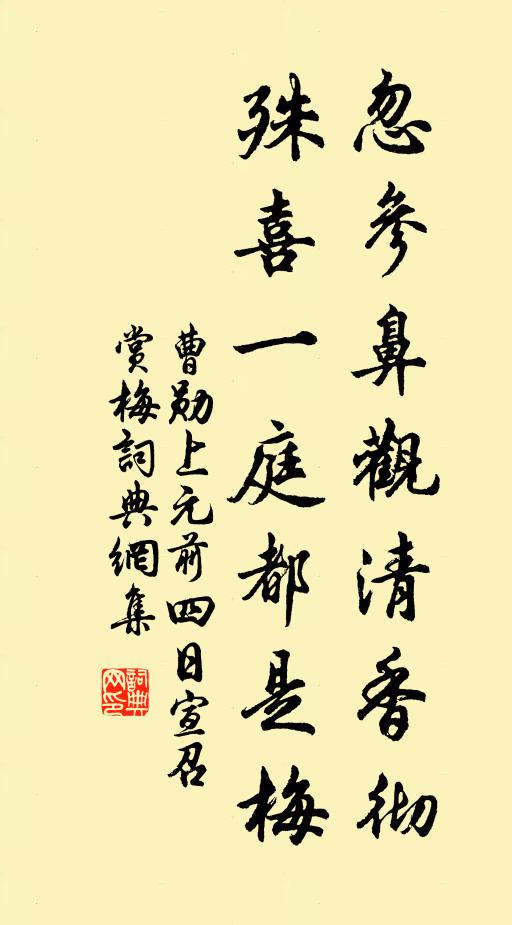 忽參鼻觀清香彻
殊喜一庭都是梅
曹勛上元前四日宣召
賞梅詞典網集
詞典网印